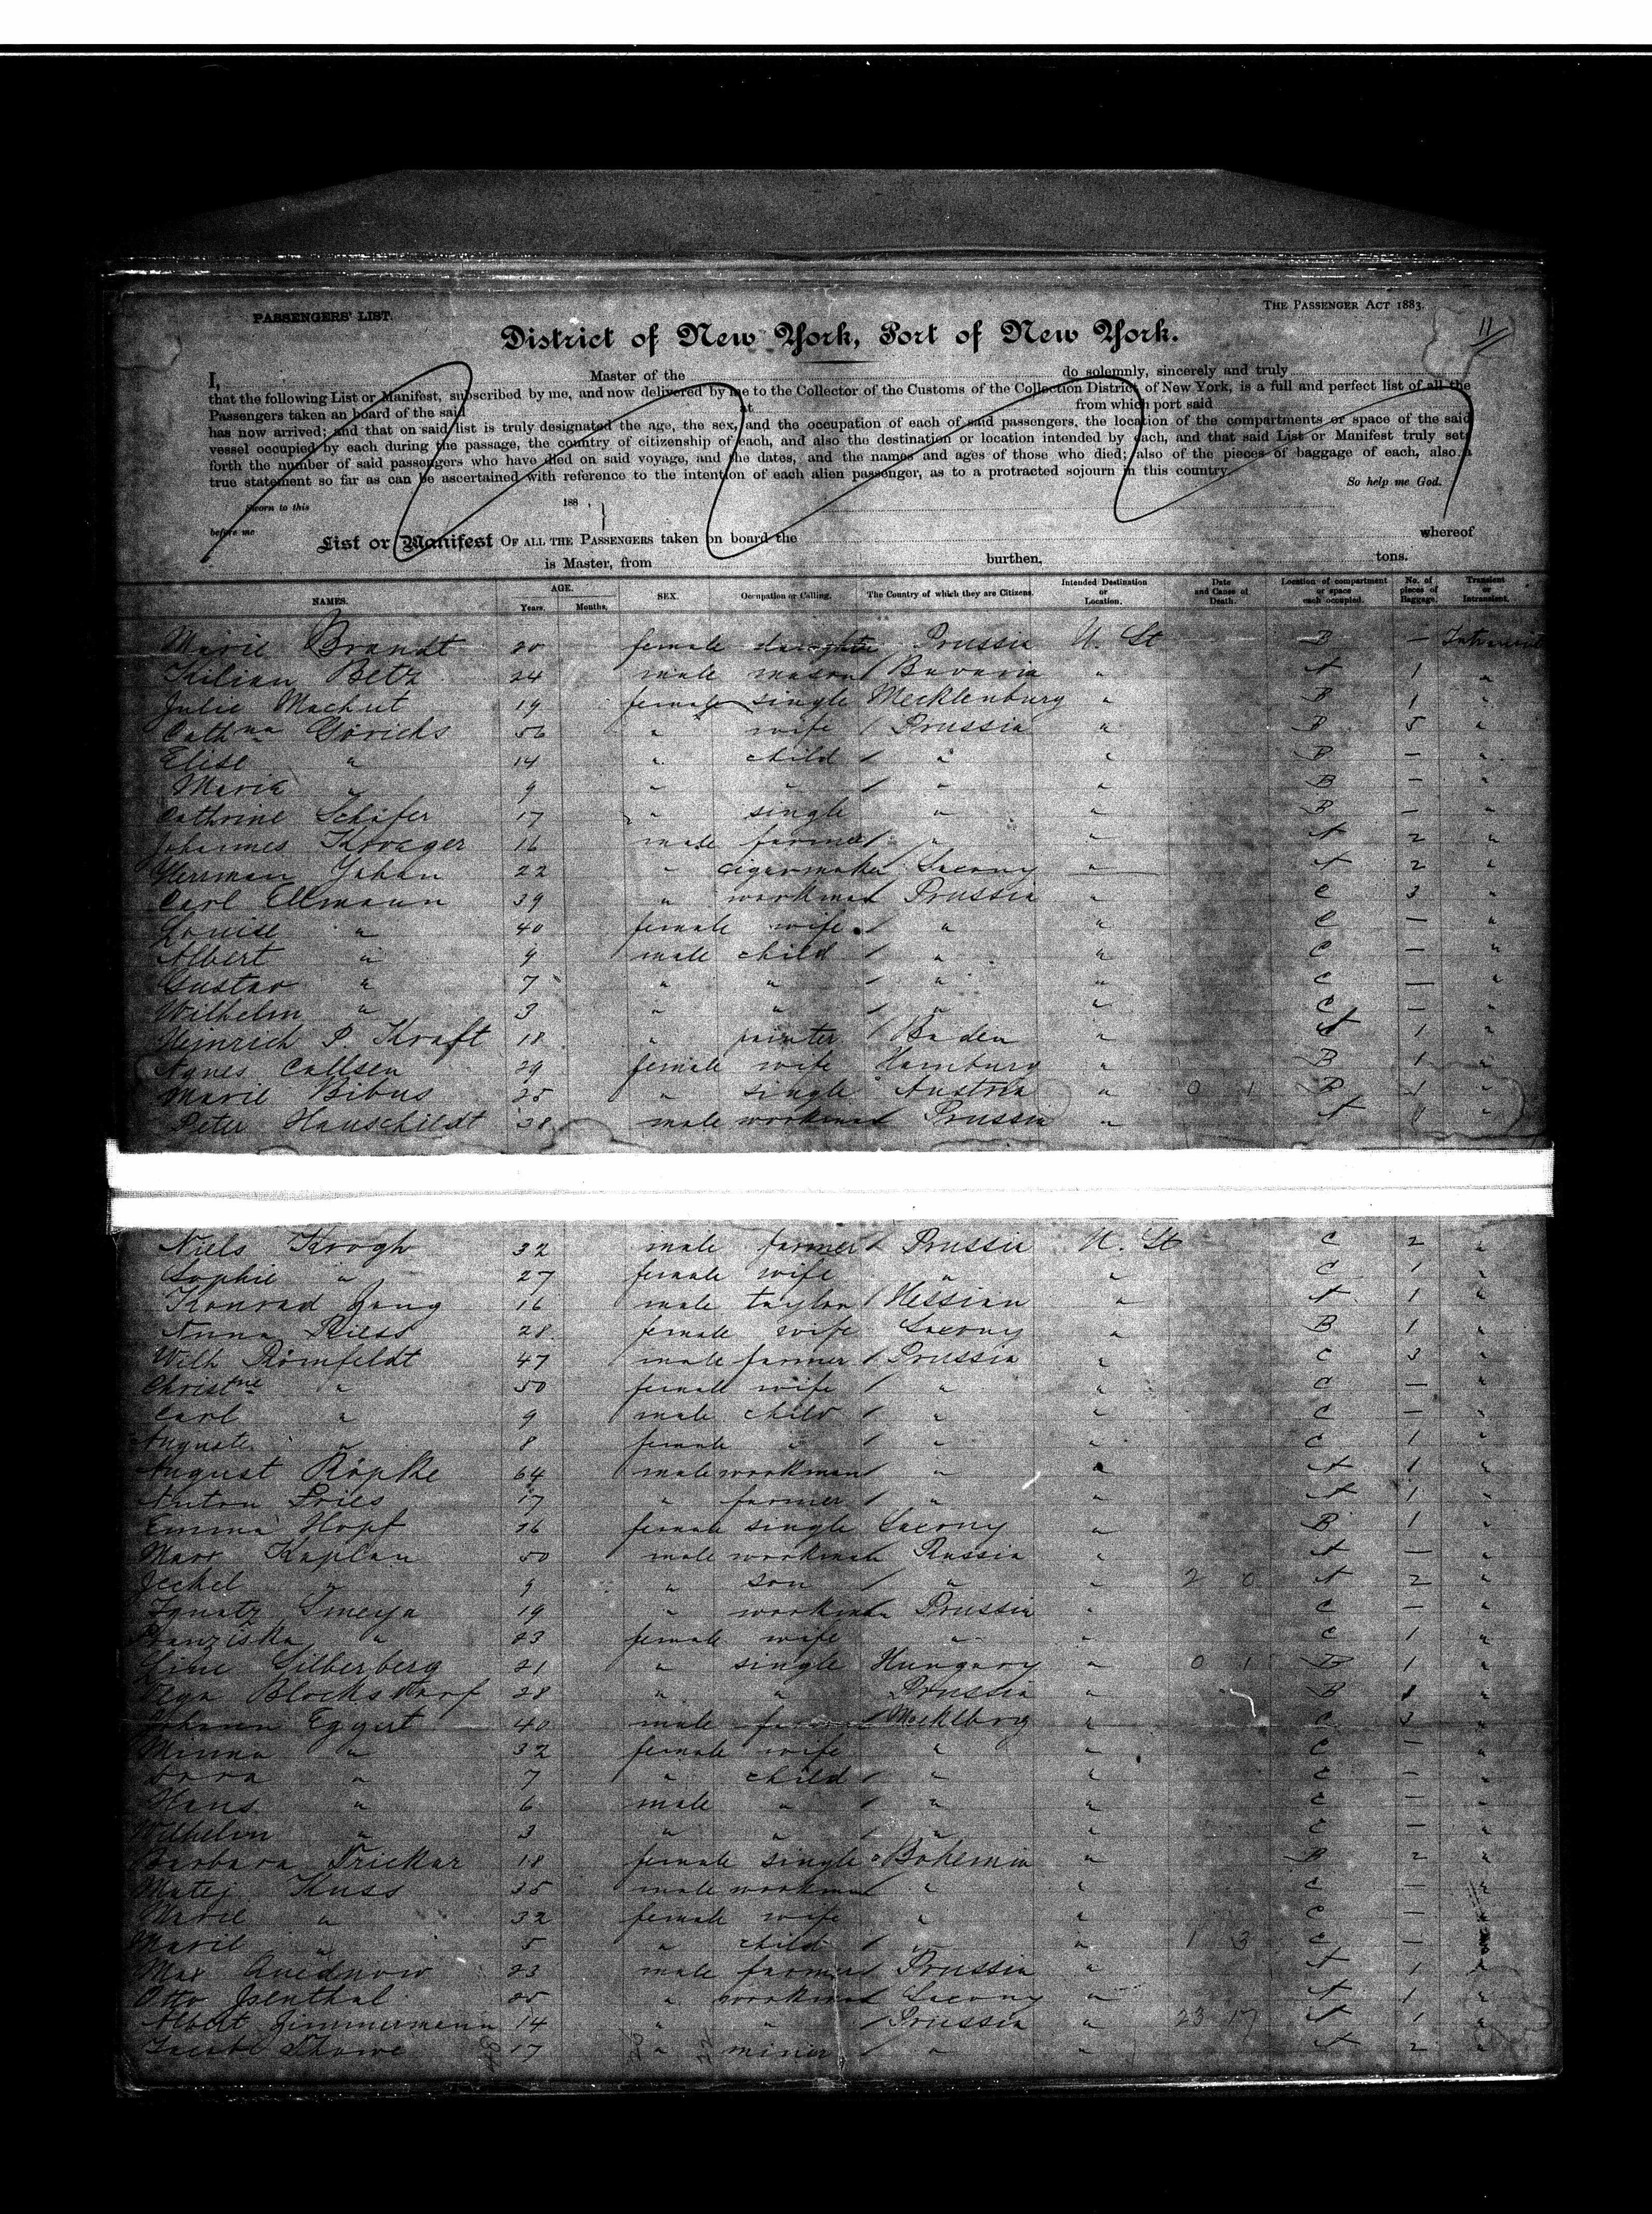 PASSENGERS' LIST.
THE PASSENGER ACT 1883.
11
District of New York, Port of New York.
I, Master of the do solemnly, sincerely and truly
that the following List or Manifest, subscribed by me, and now delivered by me to the Collector of the Customs of the Collection District of New York, is a full and perfect list of all the
Passengers taken an board of the said at from which port said
has now arrived; and that on said list is truly designated the age, the sex, and the occupation of each of said passengers, the location of the compartments or space of the said
vessel occupied by each during the passage, the country of citizenship of each, and also the destination or location intended by each, and that said List or Manifest truly sets
forth the number of said passengers who have died on said voyage, and the dates, and the names and ages of those who died; also of the pieces of baggage of each, also a
true statement so far as can be ascertained with reference to the intention of each alien passenger, as to a protracted sojourn in this country.
So help me God.
Sworn to this 188 ,
before me
List or Manifest OF ALL THE PASSENGERS taken on board the whereof
is Master, from burthen, tons.
NAMES. AGE. Years. Months. SEX. Occupation or Calling. The Country of which they are Citizens. Intended Destination or Location. Date and Cause of Death. Location of compartment or space each occupied. No. of pieces of Baggage. Transient or Intransient.
Marie Brandt 20 female daughter Prussia U. St B —
Kilian Betz 24 male mason Bavaria " A 1 "
Julie Machut 19 female single Mecklenburg " B 1 "
Cathna Görichs 56 " wife Prussia " B 5 "
Elise " 14 " child " " B — "
Maria " 9 " " " " B — "
Cathrine Schäfer 17 " single " " B — "
Johannes Kroeger 16 male farmer " " A 2 "
Herrman Jahan 22 " cigarmaker Saxony " A 2 "
Carl Ellmann 39 " workman Prussia " C 3 "
Louise " 40 female wife " " C — "
Albert " 9 male child " " C — "
Gustav " 7 " " " " C — "
Wilhelm " 3 " " " " C — "
Heinrich P. Kraft 18 " painter Baden " A 1 "
Agnes Callsen 29 female wife Hamburg " B 1 "
Marie Bibus 25 " single Austria " 0 1 B 1 "
Peter Hauschildt 38 male workman Prussia " A "
Niels Krogh 32 male farmer Prussia U. St C 2 "
Sophie " 27 female wife " " C 1 "
Konrad Jung 16 male taylor Hessian " A 1 "
Anna Riess 28 female wife Saxony " B 1 "
Wilh Römfeldt 47 male farmer Prussia " C 3 "
Christne " 50 female wife " " C — "
Carl " 9 male child " " C — "
Auguste " 8 female " " " C 1 "
August Röpke 64 male workman " " A 1 "
Anton Pries 17 " farmer " " A 1 "
Emma Hopf 26 female single Saxony " B 1 "
Marx Kaplan 50 male workman Russia " A — "
Jeckel " 9 " son " " 2 0 A 2 "
Ignatz Smeja 19 " workman Prussia " C — "
Franziska " 23 female wife " " C 1 "
Line Silberberg 21 " single Hungary " 0 1 B 1 "
Olga Blocksdorf 28 " " Prussia " B 1 "
Johann Eggert 40 male farmer Mecklbrg " C 3 "
Minna " 32 female wife " " C — "
Dora " 7 " child " " C — "
Hans " 6 male " " " C — "
Wilhelm " 3 " " " " C — "
Barbara Trickar 18 female single Bohemia " B 2 "
Matej Kuss 35 male workman " " C — "
Marie " 32 female wife " " C — "
Marie " 5 " child " " 1 3 C —
Max Quednow 23 male farmer Prussia " A 1 "
Otto Isenthal 25 " workman Saxony " A 1 "
Albert Zimmermann 14 " " Prussia " 23 17 A 1 "
Jacob Thowe 17 " miner " " A 2 "